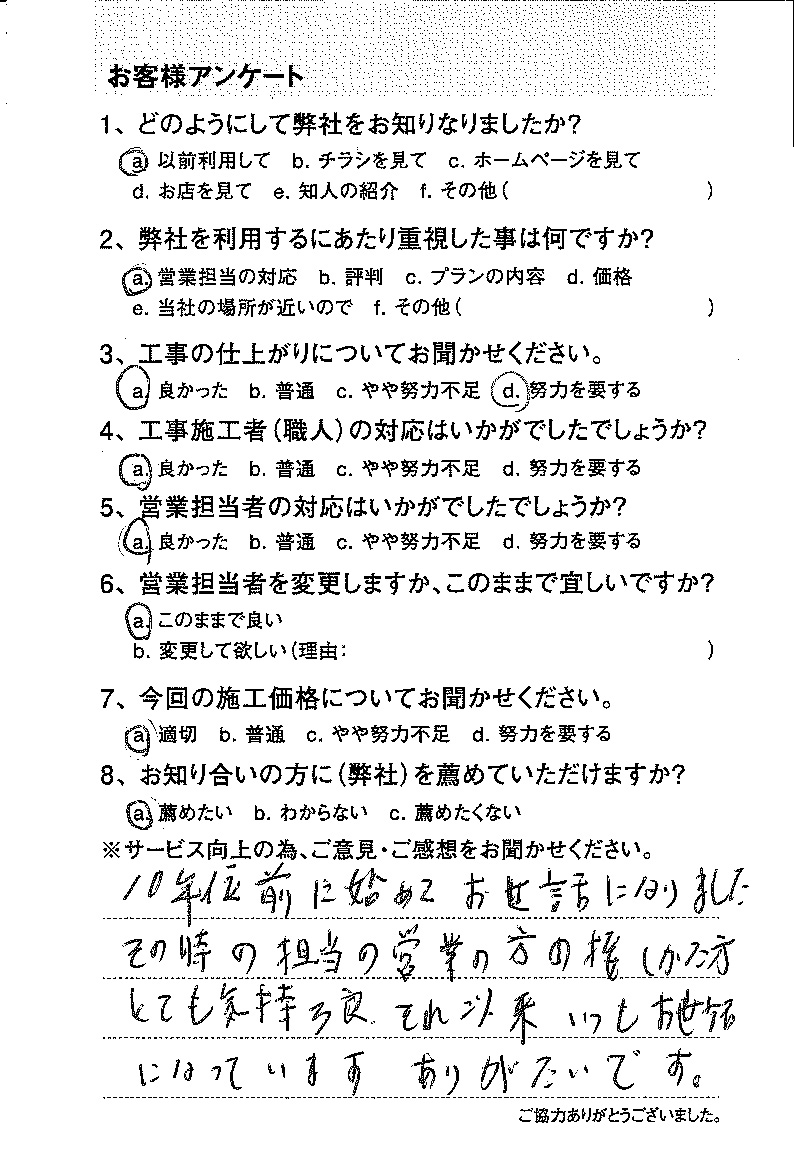 お客様アンケート
1、どのようにして弊社をお知りなりましたか?
a. 以前利用して b. チラシを見て c. ホームページを見て
d. お店を見て e. 知人の紹介 f. その他( )
2、弊社を利用するにあたり重視した事は何ですか?
a. 営業担当の対応 b. 評判 c. プランの内容 d. 価格
e. 当社の場所が近いので f. その他( )
3、工事の仕上がりについてお聞かせください。
a. 良かった b. 普通 c. やや努力不足 d. 努力を要する
4、工事施工者(職人)の対応はいかがでしたでしょうか?
a. 良かった b. 普通 c. やや努力不足 d. 努力を要する
5、営業担当者の対応はいかがでしたでしょうか?
a. 良かった b. 普通 c. やや努力不足 d. 努力を要する
6、営業担当者を変更しますか、このままで宜しいですか?
a. このままで良い
b. 変更して欲しい(理由: )
7、今回の施工価格についてお聞かせください。
a. 適切 b. 普通 c. やや努力不足 d. 努力を要する
8、お知り合いの方に(弊社)を薦めていただけますか?
a. 薦めたい b. わからない c. 薦めたくない
※サービス向上の為、ご意見・ご感想をお聞かせください。
10年位前に始めてお世話になりました
その時の担当の営業の方の接しかた方
とても気持ち良 それ以来 いつもお世話
になっています ありがたいです。
ご協力ありがとうございました。